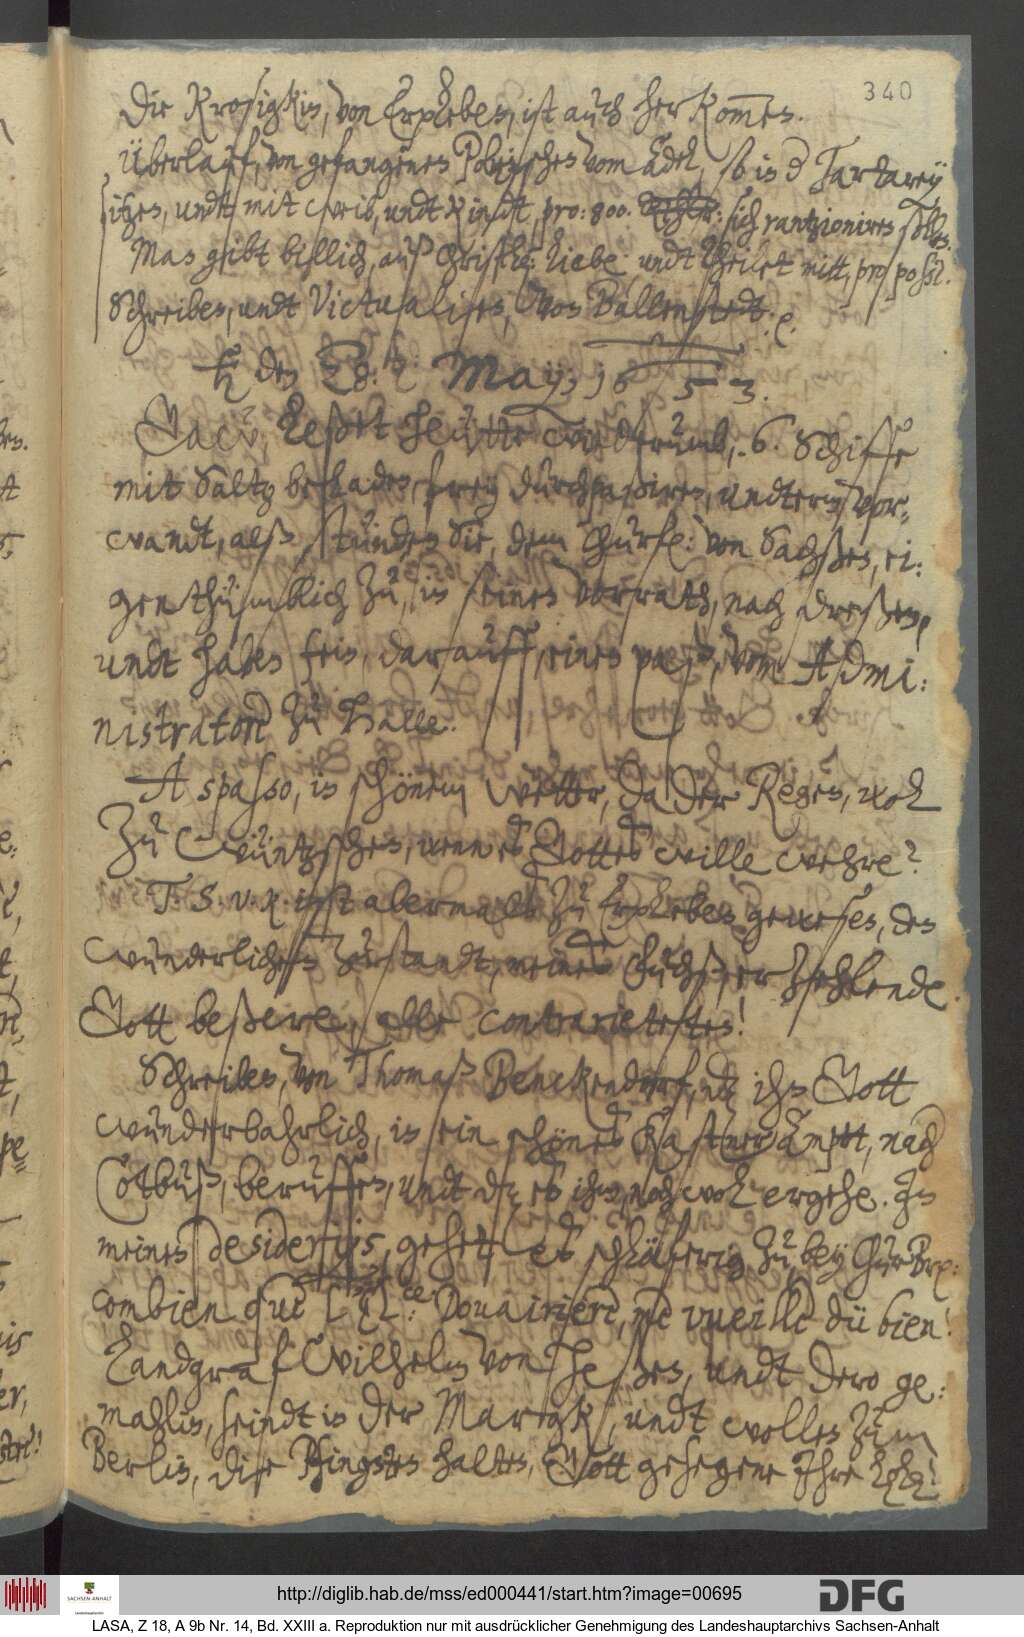 340
Die Krosigkin, von Erxleben, ist auch herkommen.
Überlauf, von gefangenen Polnischen vom Adel, so in d Tartarey
sitzen, undt mit weib, undt kindt, pro: 800. sich rantzioniren sollen.
Man gibt billich, auß Christlicher liebe undt steuert mitt, pro poßil.
Schreiben, undt Victualien, von Ballenstedt. e.
den 28. May, 1653.
Gacu, leßett heütte wiedrumb, 6. Schiffe
mit Saltz beladen, frey durchpaßiren, undterm vor¬
wandt, alß, stünden Sie, dem Churf: von Sachßen, ei:
genthümblich zu, in seinen vorrath, nach Dreßen,
undt haben sein, darauff, einen paß, vom Admi:
nistratore zu Halle.
A spasso, in schönem wetter, da der Regen, wol
zu wüntzschen, wenn es Gottes wille wehre?
T. S. v. R. ist abermalß zu Erxleben gewesen, den
wunderlichen zustandt, meines Fuchß, erzehlende.
Gott beßere, alle contrarieteten!
Schreiben, von Thomaß Benckendorf, daß ihn Gott
wunderbahrlich, in ein schönes Castner Ampt, nach
Cotbuß, beruffen, undt daß es ihm, noch wol ergehe. In
meinen Desiderijs, gehet es schläferig zu, bey ChurBr:
combien que Douairiere, me vueille du bien!
Landgraf Wilhelm von Heßen, undt Dero ge:
mahlin, seindt in der Marck, undt wollen zum
Berlin, dise Pfingsten halten, Gott gesegene Ihre
http://diglib.hab.de/mss/ed000441/start.htm?image=00695
SACHSEN-ANHALT
Landeshauptarchiv
DFG
LASA, Z 18, A 9b Nr. 14, Bd. XXIII a. Reproduktion nur mit ausdrücklicher Genehmigung des Landeshauptarchivs Sachsen-Anhalt